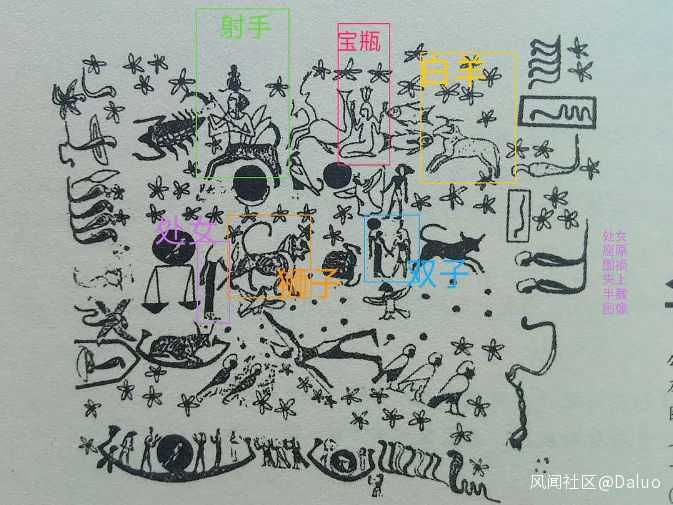 射手
宝瓶
白羊
处女
狮子
双子
处女
座原
图损
失上
半截
图像
风闻社区@Daluo